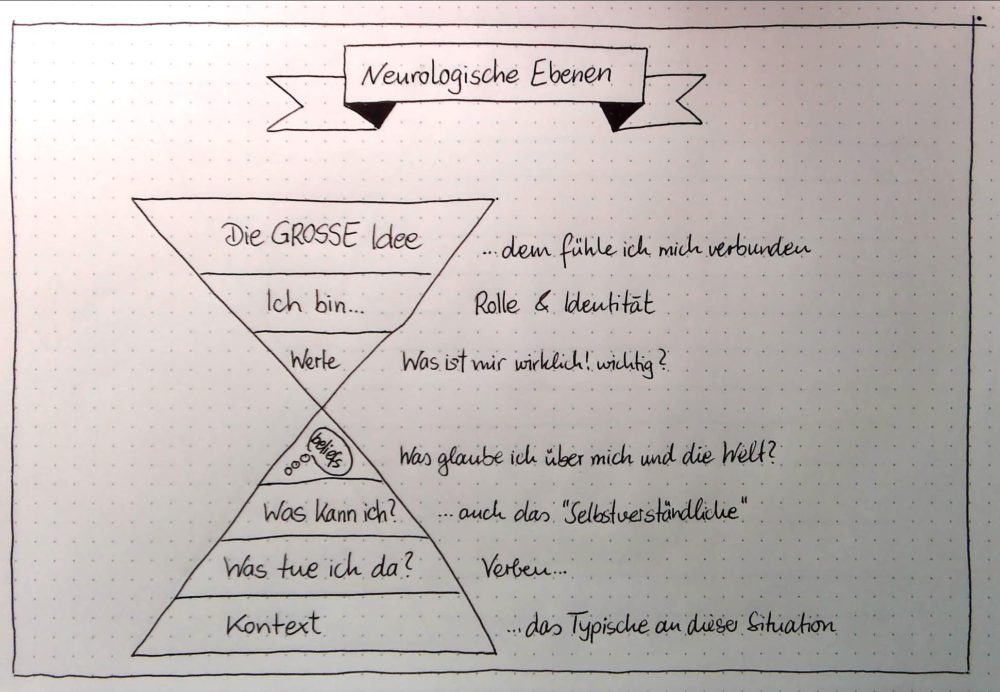 Neurologische Ebenen
Die GROSSE Idee
...dem fühle ich mich verbunden
Ich bin...
Rolle & Identität
Werte
Was ist mir wirklich! wichtig?
beliefs
Was glaube ich über mich und die Welt?
Was kann ich?
...auch das "Selbstverständliche"
Was tue ich da?
Verben...
Kontext
...das Typische an dieser Situation